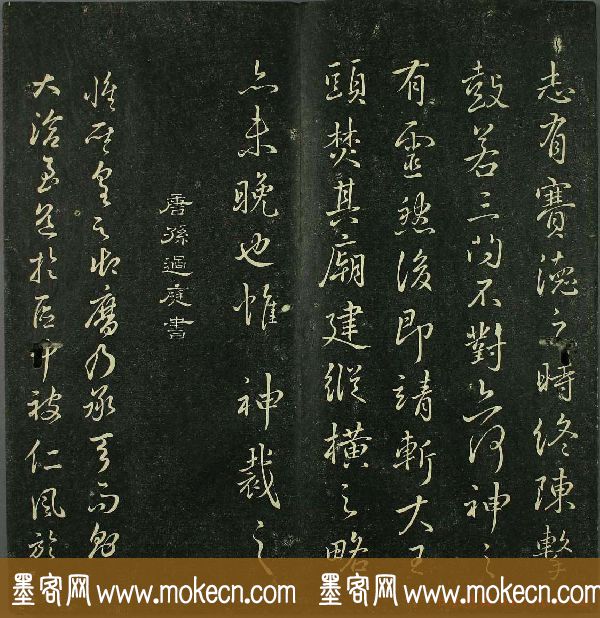 志有賽德之時終陳擊
鼓若三問不對亦何神之
有靈然後即靖斬大王
頭焚其廟建縱橫之略
亦未晚也惟 神裁之
唐孫過庭書
惟皇之膺乃承天而
大洽道於區中被仁風於
墨客网 www.mokecn.com 墨客网 www.mokecn.com